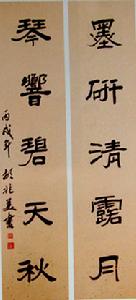 墨研清露月
琴響碧天秋
丙戌年
書